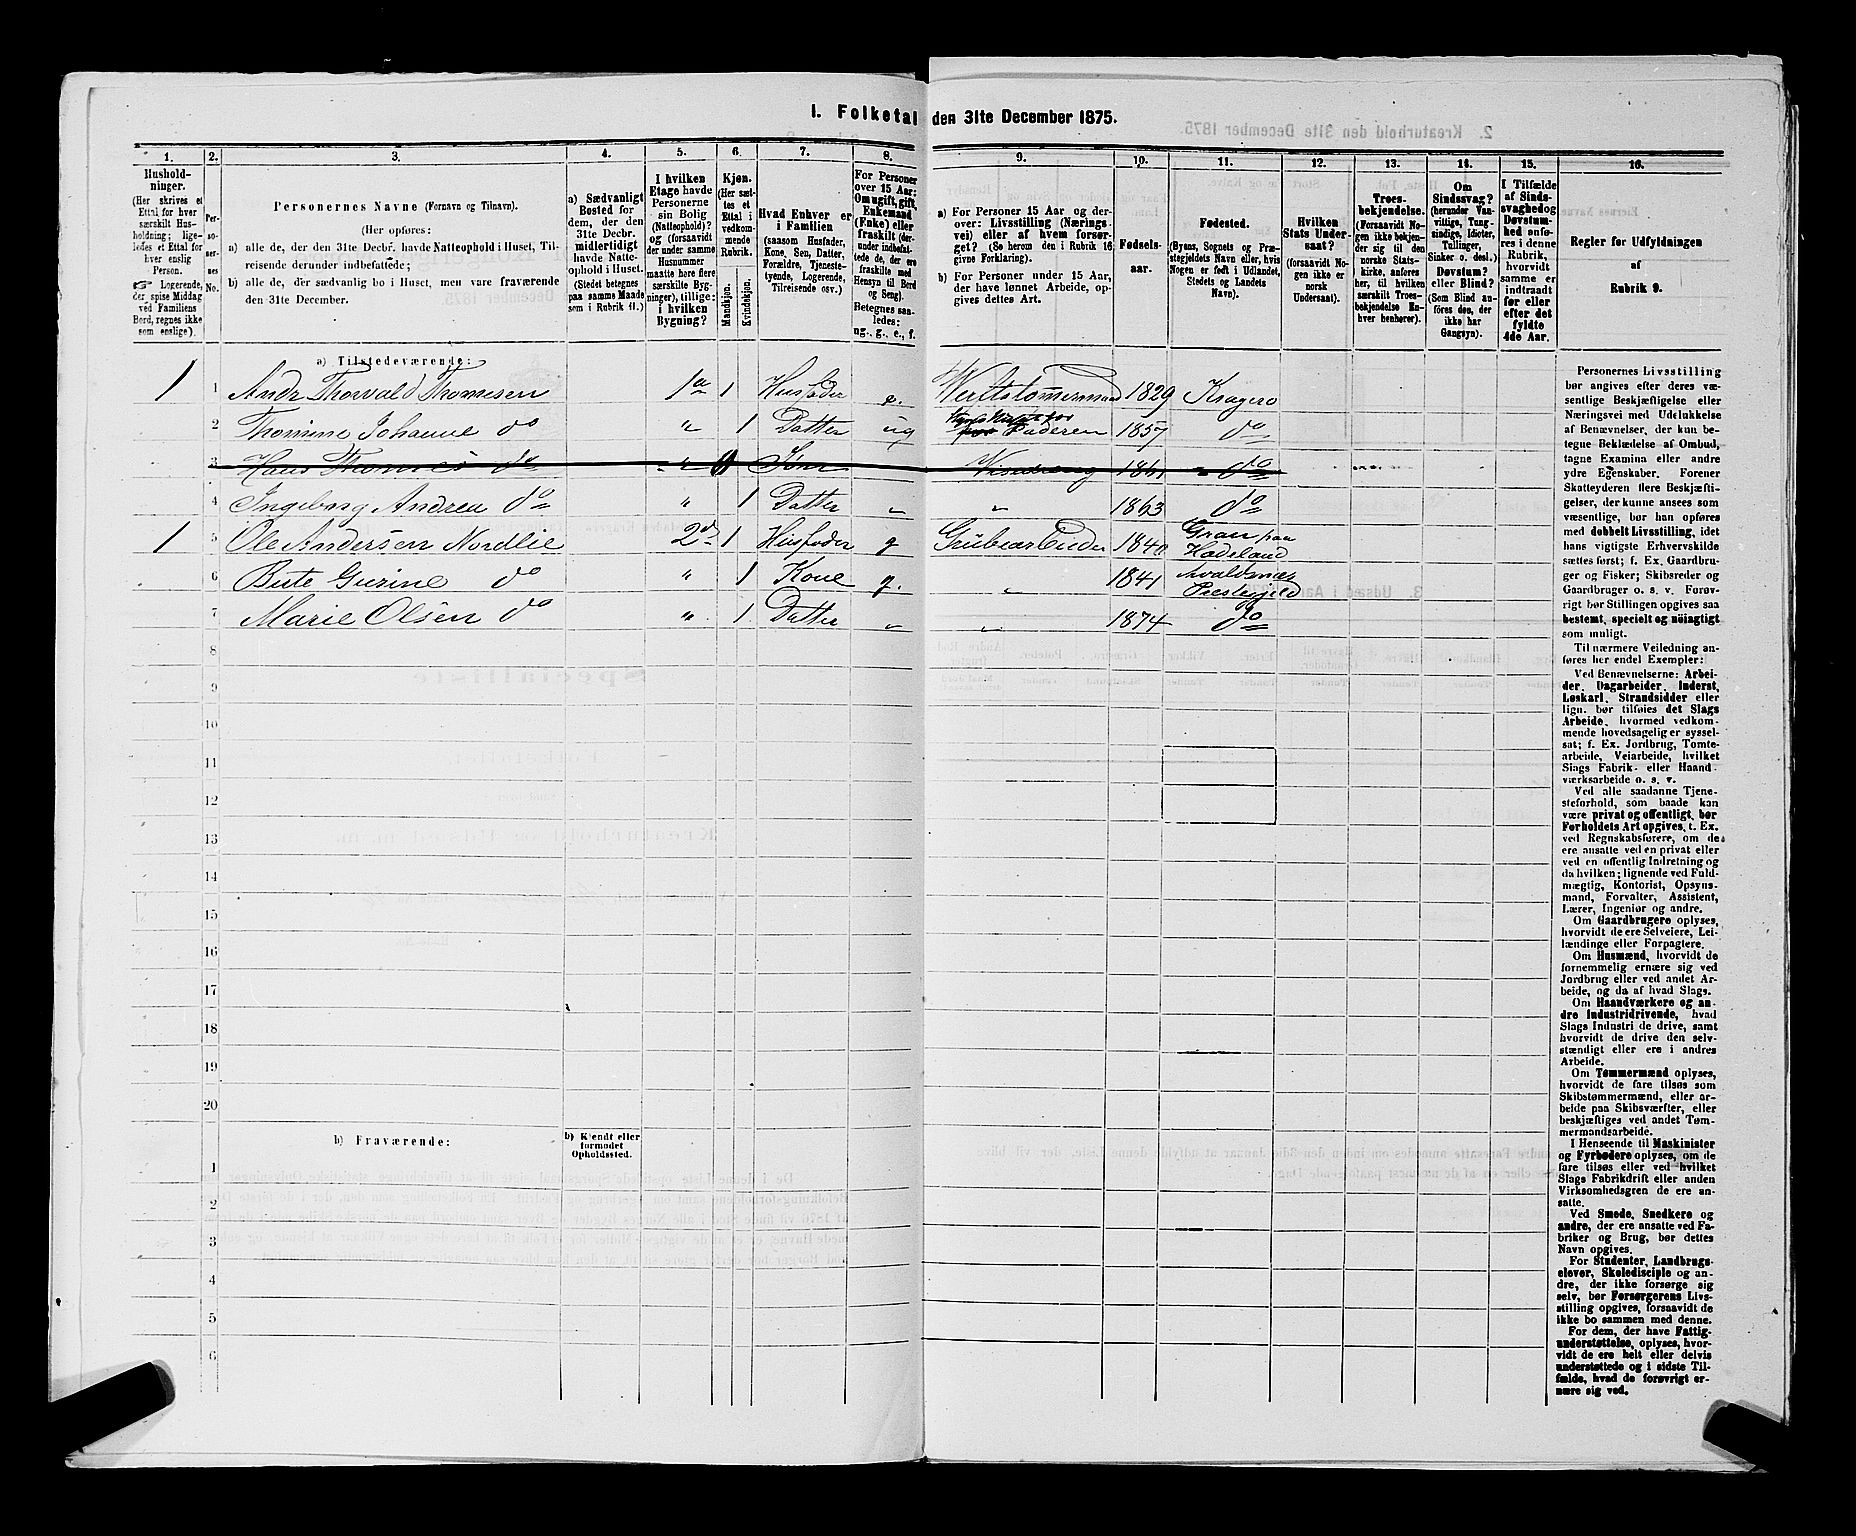 1. Folketal den 31te December 1875.
1. 2. 3. 4. 5. 6. 7. 8. 9. 10. 11. 12. 13. 14. 15. 16.
Hushold-
ninger.
(Her skrives et
Ettal for hver
særskilt Hus-
holdning; lige-
ledes et Ettal for
hver enslig
Person.
Logerende,
der spise Middag
ved Familiens
Bord, regnes ikke
som enslige).
Per-
so-
ner-
nes
No.
Personernes Navne (Fornavn og Tilnavn).
(Her opføres:
a) alle de, der den 31te Decbr. havde Natteophold i Huset, Til-
reisende derunder indbefattede;
b) alle de, der sædvanlig bo i Huset, men vare fraværende
den 31te December.
a) Sædvanligt
Bosted for
dem, der den
31te Decbr.
midlertidigt
havde Natte-
ophold i Huset.
(Stedet betegnes
paa samme Maade
som i Rubrik 11.)
I hvilken
Etage havde
Personerne
sin Bolig
(Natteophold)?
og (forsaavidt
der under samme
Husnummer
maatte høre flere
særskilte Byg-
ninger), tillige:
i hvilken
Bygning?
Kjøn.
(Her sæt-
tes et
Ettal i
vedkom-
mende
Rubrik.
Mandkjøn.
Kvindekjøn.
Hvad Enhver er
i Familien
(saasom Husfader,
Kone, Søn, Datter,
Forældre, Tjeneste-
tyende, Logerende,
Tilreisende osv.)
For Personer
over 15 Aar:
Om ugift, gift,
Enkemand
(Enke) eller
fraskilt (der-
under indbefat-
tede de, der ere
fraskilte med
Hensyn til Bord
og Seng).
Betegnes saa-
ledes:
ug., g., e., f.
a) For Personer 15 Aar og der-
over: Livsstilling (Nærings-
vei) eller af hvem forsør-
get? (Se herom den i Rubrik 16
givne Forklaring).
b) For Personer under 15 Aar,
der have lønnet Arbeide, op-
gives dettes Art.
Fødsels-
aar.
Fødested.
(Byens, Sognets og Præ-
stegjeldets Navn eller, hvis
Nogen er født i Udlandet,
Stedets og Landets
Navn).
Hvilken
Stats Under-
saat?
(forsaavidt No-
gen ikke er
norsk
Undersaat).
Troes-
bekjendelse.
(Forsaavidt No-
gen ikke bekjen-
der sig til den
norske Stats-
kirke, anføres
her, til hvilken
særskilt Troes-
bekjendelse En-
hver henhører).
Om
Sindssvag?
(herunder Van-
vittige, Tung-
sindige, Idioter,
Tullinger,
Sinker o. desl.)
Døvstum?
eller Blind?
(Som Blind an-
føres den, der
ikke har
Gangsyn).
I Tilfælde
af Sinds-
svaghed og
Døvstum-
hed anfø-
res i denne
Rubrik,
hvorvidt
samme er
indtraadt
før eller
efter det
fyldte
4de Aar.
Regler for Udfyldningen
af
Rubrik 9.
a) Tilstedeværende:
1 1 Andr Thorvald Thomesen 1 a 1 Husfader e. 1829 Kragerø
2 Thomine Johanne do " 1 Datter ug Faderen 1857 do
3 Hans Thomes do " Søn 1861 do
4 Ingeborg Andrea do " 1 Datter " " 1863 do
1 5 Ole Andersen Nordlie 2d 1 Husfader g 1840 Gran paa Hadeland
6 Berte Gurine do " 1 Kone g. " 1841 Præstegjeld
7 Marie Olsen do " 1 Datter " " 1874 do
8
9
10
11
12
13
14
15
16
17
18
19
20
b) Fraværende:
b) Kjendt eller
formodet
Opholdssted.
1
2
3
4
5
6
Personernes Livsstilling
bør angives efter deres væ-
sentlige Beskjæftigelse eller
Næringsvei med Udelukkelse
af Benævnelser, der kun be-
tegne Beklædelse af Ombud,
tagne Examina eller andre
ydre Egenskaber. Forener
Skatteyderen flere Beskjæfti-
gelser, der kunne ansees som
væsentlige, bør han opføres
med dobbelt Livsstilling, idet
hans vigtigste Erhvervskilde
sættes først; f. Ex. Gaardbru-
ger og Fisker; Skibsreder og
Gaardbruger o. s. v. Forøv-
rigt bør Stillingen opgives saa
bestemt, specielt og nøiagtigt
som muligt.
Til nærmere Veiledning an-
føres her endel Exempler:
Ved Benævnelserne: Arbei-
der, Dagarbeider, Inderst,
Løskarl, Strandsidder eller
lign. bør tilføies det Slags
Arbeide, hvormed vedkom-
mende hovedsagelig er syssel-
sat; f. Ex. Jordbrug, Tomte-
arbeide, Veiarbeide, hvilket
Slags Fabrik- eller Haand-
værksarbeide o. s. v.
Ved alle saadanne Tjene-
steforhold, som baade kan
være privat og offentligt, bør
Forholdets Art opgives, t. Ex.
ved Regnskabsførere, om de
ere ansatte ved en privat eller
ved en offentlig Indretning og
da hvilken; lignende ved Fuld-
mægtig, Kontorist, Opsyns-
mand, Forvalter, Assistent,
Lærer, Ingeniør og andre.
Om Gaardbrugere oplyses,
hvorvidt de ere Selveiere, Lei-
lændinge eller Forpagtere.
Om Husmænd, hvorvidt de
fornemmelig ernære sig ved
Jordbrug eller ved andet Ar-
beide, og da af hvad Slags.
Om Haandværkere og an-
dre Industridrivende, hvad
Slags Industri de drive, samt
hvorvidt de drive den selv-
stændigt eller ere i andres
Arbeide.
Om Tømmermænd oplyses,
hvorvidt de fare tilsøs som
Skibstømmermænd, eller ar-
beide paa Skibsværfter, eller
beskjæftiges ved andet Tøm-
mermandsarbeide.
I Henseende til Maskinister
og Fyrbødere oplyses, om de
fare tilsøs eller ved hvilket
Slags Fabrikdrift eller anden
Virksomhedsgren de ere an-
satte.
Ved Smede, Snedkere og
andre, der ere ansatte ved Fa-
briker og Brug, bør dettes
Navn opgives.
For Studenter, Landbrugs-
elever, Skoledisciple og an-
dre, der ikke forsørge sig
selv, bør Forsørgerens Livs-
stilling opgives, forsaavidt de
ikke bo sammen med denne.
For dem, der have Fattig-
understøttelse, oplyses, hvor-
vidt de ere helt eller delvis
understøttede og i sidste Til-
fælde, hvad de forøvrigt er-
nære sig ved.